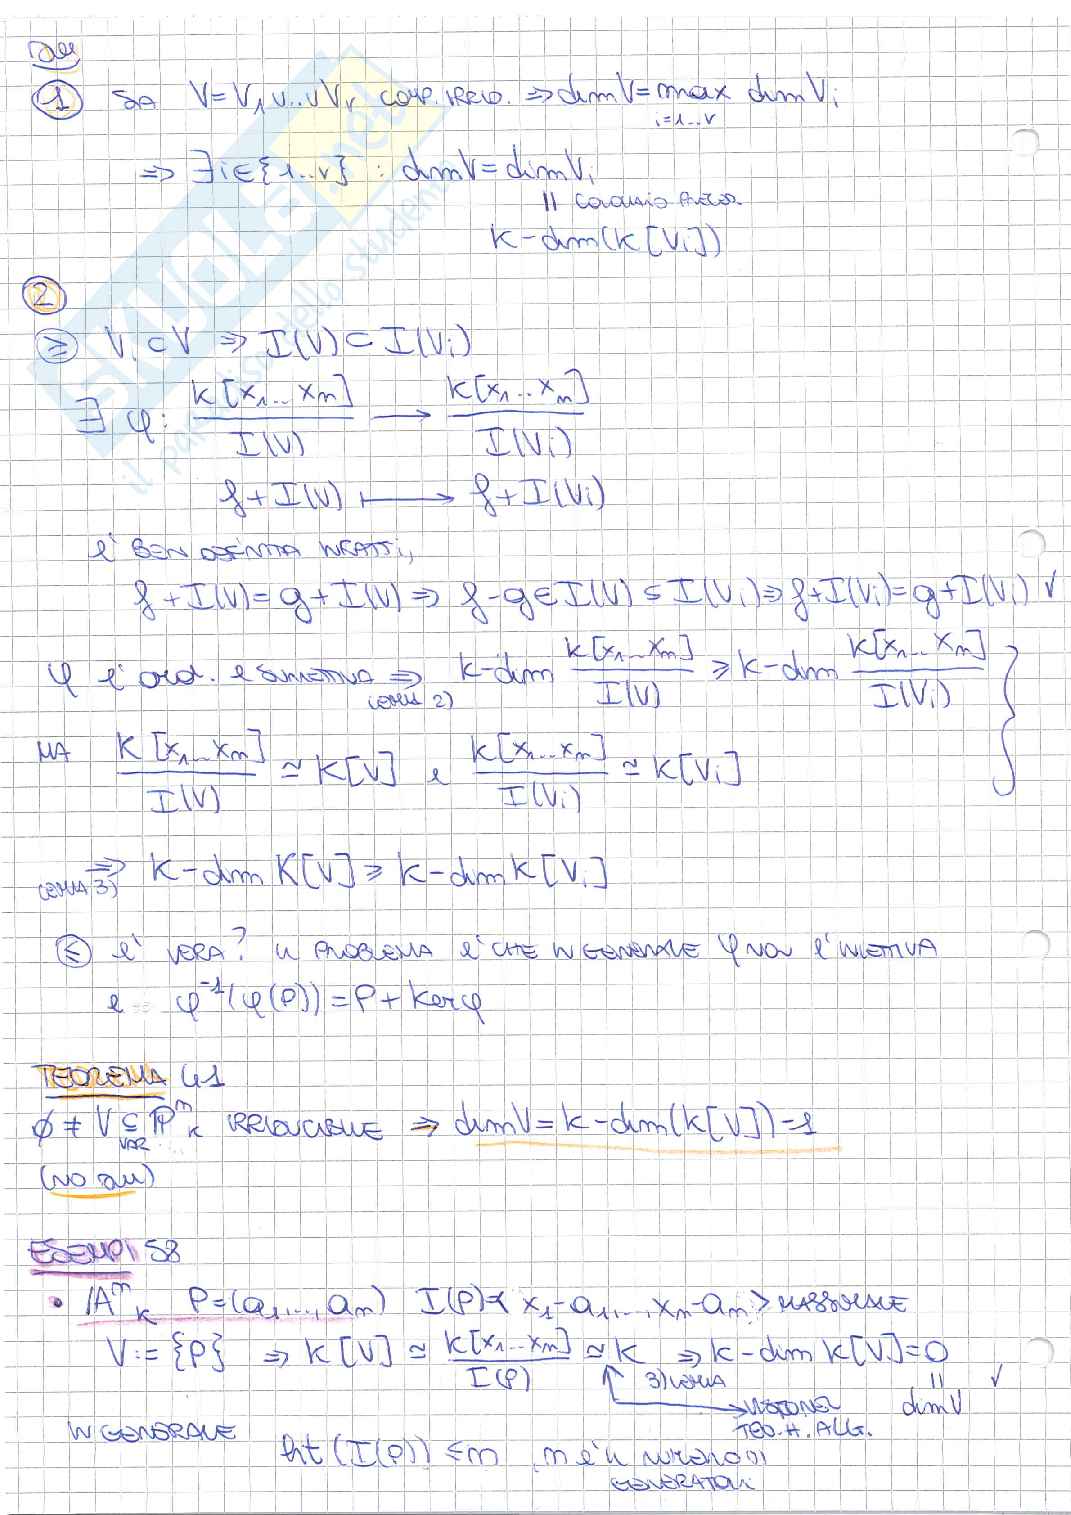 DIM
① SIA V=V₁∪..∪Vᵣ COMP. IRRID. ⇒ dim V = max dim Vᵢ
i=1..r
⇒ ∃ i∈{1..r} : dim V = dim Vᵢ
|| COROLLARIO PRECED.
K-dim(K[Vᵢ])
②
≥ Vᵢ ⊂ V ⇒ I(V) ⊂ I(Vᵢ)
∃ φ: K[x₁..xₙ]/I(V) → K[x₁..xₙ]/I(Vᵢ)
f+I(V) ↦ f+I(Vᵢ)
è BEN DEFINITA INFATTI,
f+I(V)=g+I(V) ⇒ f-g∈I(V)⊆I(Vᵢ) ⇒ f+I(Vᵢ)=g+I(Vᵢ) ✓
φ è om. e SURIETTIVA ⇒ K-dim K[x₁..xₙ]/I(V) ≥ K-dim K[x₁..xₙ]/I(Vᵢ)
(LEMMA 2)
MA K[x₁..xₙ]/I(V) ≃ K[V] e K[x₁..xₙ]/I(Vᵢ) ≃ K[Vᵢ]
⇒ K-dim K[V] ≥ K-dim K[Vᵢ]
(LEMMA 3)
≤ è VERA? IL PROBLEMA è CHE IN GENERALE φ NON è INIETTIVA
e φ⁻¹(φ(P)) = P + kerφ
TEOREMA 41
∅ ≠ V ⊆ ℙⁿ_K IRRIDUCIBILE ⇒ dim V = K-dim(K[V])-1
VAR.
(NO DIM)
ESEMPI 58
• 𝔸ⁿ_K P=(a₁,...,aₙ) I(P)=< x₁-a₁,..., xₙ-aₙ > MASSIMALE
V:={P} ⇒ K[V] ≃ K[x₁..xₙ]/I(P) ≃ K ⇒ K-dim K[V]=0
3) LEMMA || ✓
VISTO NEL dim V
TEO. H. ALG.
IN GENERALE
ht(I(P)) ≤ n, n è il NUMERO DI
GENERATORI